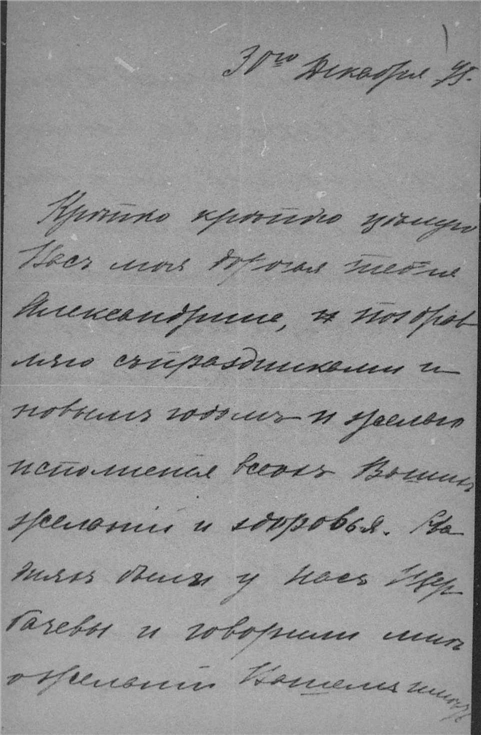 30го Декабря 95.
Крѣпко крѣпко цѣлую
Васъ моя дорогая тетя
Александрине, и поздрав
ляю съ праздниками и
новымъ годомъ и желаю
исполненія всехъ Вашихъ
желаній и здоровья. На
дняхъ были у насъ Щер
бачевы и говорили мнѣ
о желаніи Вашемъ имѣть